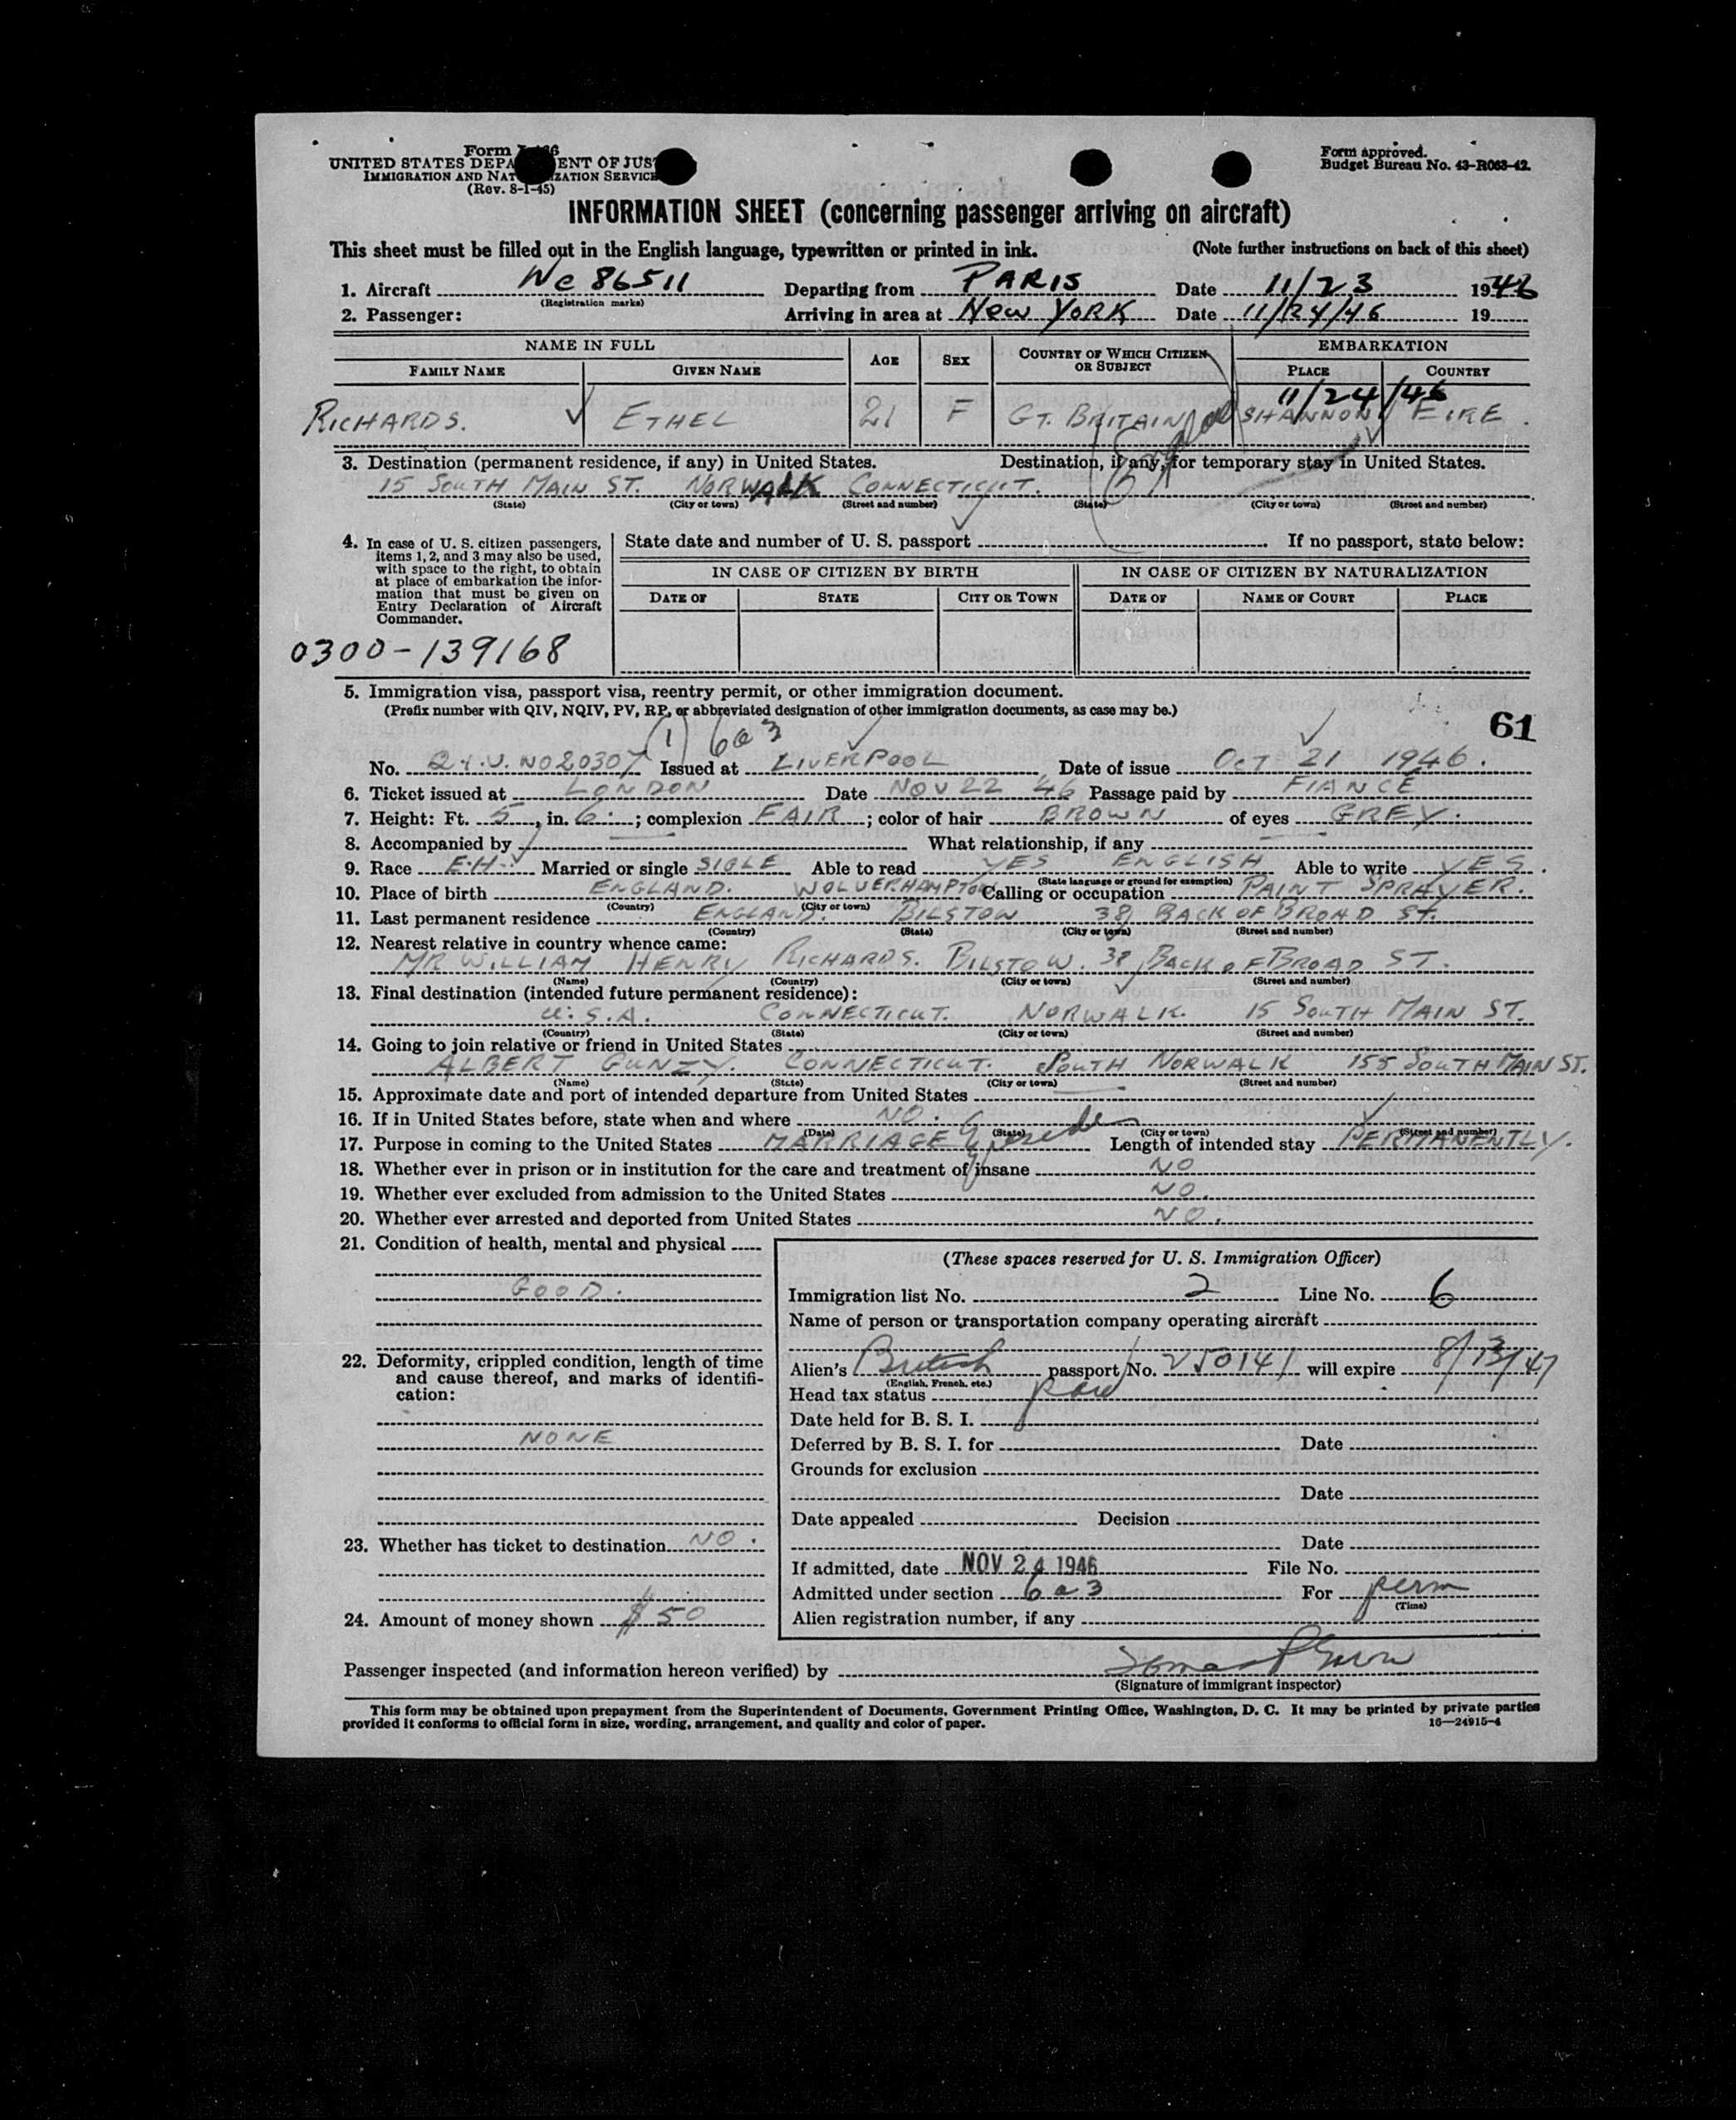 Form I-466
UNITED STATES DEPA ENT OF JUS
IMMIGRATION AND NAT IZATION SERVICE
(Rev. 8-1-45)
Form approved.
Budget Bureau No. 43-R063-42.
INFORMATION SHEET (concerning passenger arriving on aircraft)
This sheet must be filled out in the English language, typewritten or printed in ink. (Note further instructions on back of this sheet)
1. Aircraft Nc 86511 Departing from PARIS Date 11/23 1946
(Registration marks)
2. Passenger: Arriving in area at New YORK Date 11/24/46 19
NAME IN FULL AGE SEX COUNTRY OF WHICH CITIZEN OR SUBJECT EMBARKATION
FAMILY NAME GIVEN NAME PLACE COUNTRY
11/24/46
RICHARDS. ETHEL 21 F GT. BRITAIN SHANNON EIRE.
England
3. Destination (permanent residence, if any) in United States. Destination, if any, for temporary stay in United States.
15 SOUTH MAIN ST. NORWALK CONNECTICUT.
(State) (City or town) (Street and number) (State) (City or town) (Street and number)
4. In case of U. S. citizen passengers, items 1, 2, and 3 may also be used, with space to the right, to obtain at place of embarkation the information that must be given on Entry Declaration of Aircraft Commander.
State date and number of U. S. passport If no passport, state below:
IN CASE OF CITIZEN BY BIRTH IN CASE OF CITIZEN BY NATURALIZATION
DATE OF STATE CITY OR TOWN DATE OF NAME OF COURT PLACE
0300-139168
5. Immigration visa, passport visa, reentry permit, or other immigration document.
(Prefix number with QIV, NQIV, PV, RP, or abbreviated designation of other immigration documents, as case may be.)
61
(1) 6a3
No. Q.I.V. NO 20307 Issued at LIVERPOOL Date of issue OCT 21 1946.
6. Ticket issued at LONDON Date NOV 22 46 Passage paid by FIANCÉ
7. Height: Ft. 5, in. 6.; complexion FAIR; color of hair BROWN of eyes GREY.
8. Accompanied by What relationship, if any
9. Race E.H. Married or single SIGLE Able to read YES ENGLISH Able to write YES.
(State language or ground for exemption)
10. Place of birth ENGLAND. WOLVERHAMPTON Calling or occupation PAINT SPRAYER.
(Country) (City or town)
11. Last permanent residence ENGLAND. BILSTON 38 BACK OF BROAD ST.
(Country) (State) (City or town) (Street and number)
12. Nearest relative in country whence came:
MR WILLIAM HENRY RICHARDS. BILSTOW. 38 BACK OF BROAD ST.
(Name) (Country) (City or town) (Street and number)
13. Final destination (intended future permanent residence):
U.S.A. CONNECTICUT. NORWALK. 15 SOUTH MAIN ST.
(Country) (State) (City or town) (Street and number)
14. Going to join relative or friend in United States
ALBERT GUNZY. CONNECTICUT. SOUTH NORWALK 155 SOUTH MAIN ST.
(Name) (State) (City or town) (Street and number)
15. Approximate date and port of intended departure from United States
16. If in United States before, state when and where NO.
(Date) (State) (City or town) (Street and number)
17. Purpose in coming to the United States MARRIAGE Length of intended stay PERMANENTLY.
18. Whether ever in prison or in institution for the care and treatment of insane NO
19. Whether ever excluded from admission to the United States NO.
20. Whether ever arrested and deported from United States NO.
21. Condition of health, mental and physical
GOOD.
22. Deformity, crippled condition, length of time and cause thereof, and marks of identification:
NONE
23. Whether has ticket to destination NO.
24. Amount of money shown $50
(These spaces reserved for U. S. Immigration Officer)
Immigration list No. 2 Line No. 6
Name of person or transportation company operating aircraft
Alien's British passport No. 250141 will expire 8/13/47
(English, French, etc.)
Head tax status
Date held for B. S. I.
Deferred by B. S. I. for Date
Grounds for exclusion
Date
Date appealed Decision
Date
If admitted, date NOV 24 1946 File No.
Admitted under section 6a3 For perm
(Time)
Alien registration number, if any
Passenger inspected (and information hereon verified) by
(Signature of immigrant inspector)
This form may be obtained upon prepayment from the Superintendent of Documents, Government Printing Office, Washington, D. C. It may be printed by private parties
provided it conforms to official form in size, wording, arrangement, and quality and color of paper. 16—24915-4